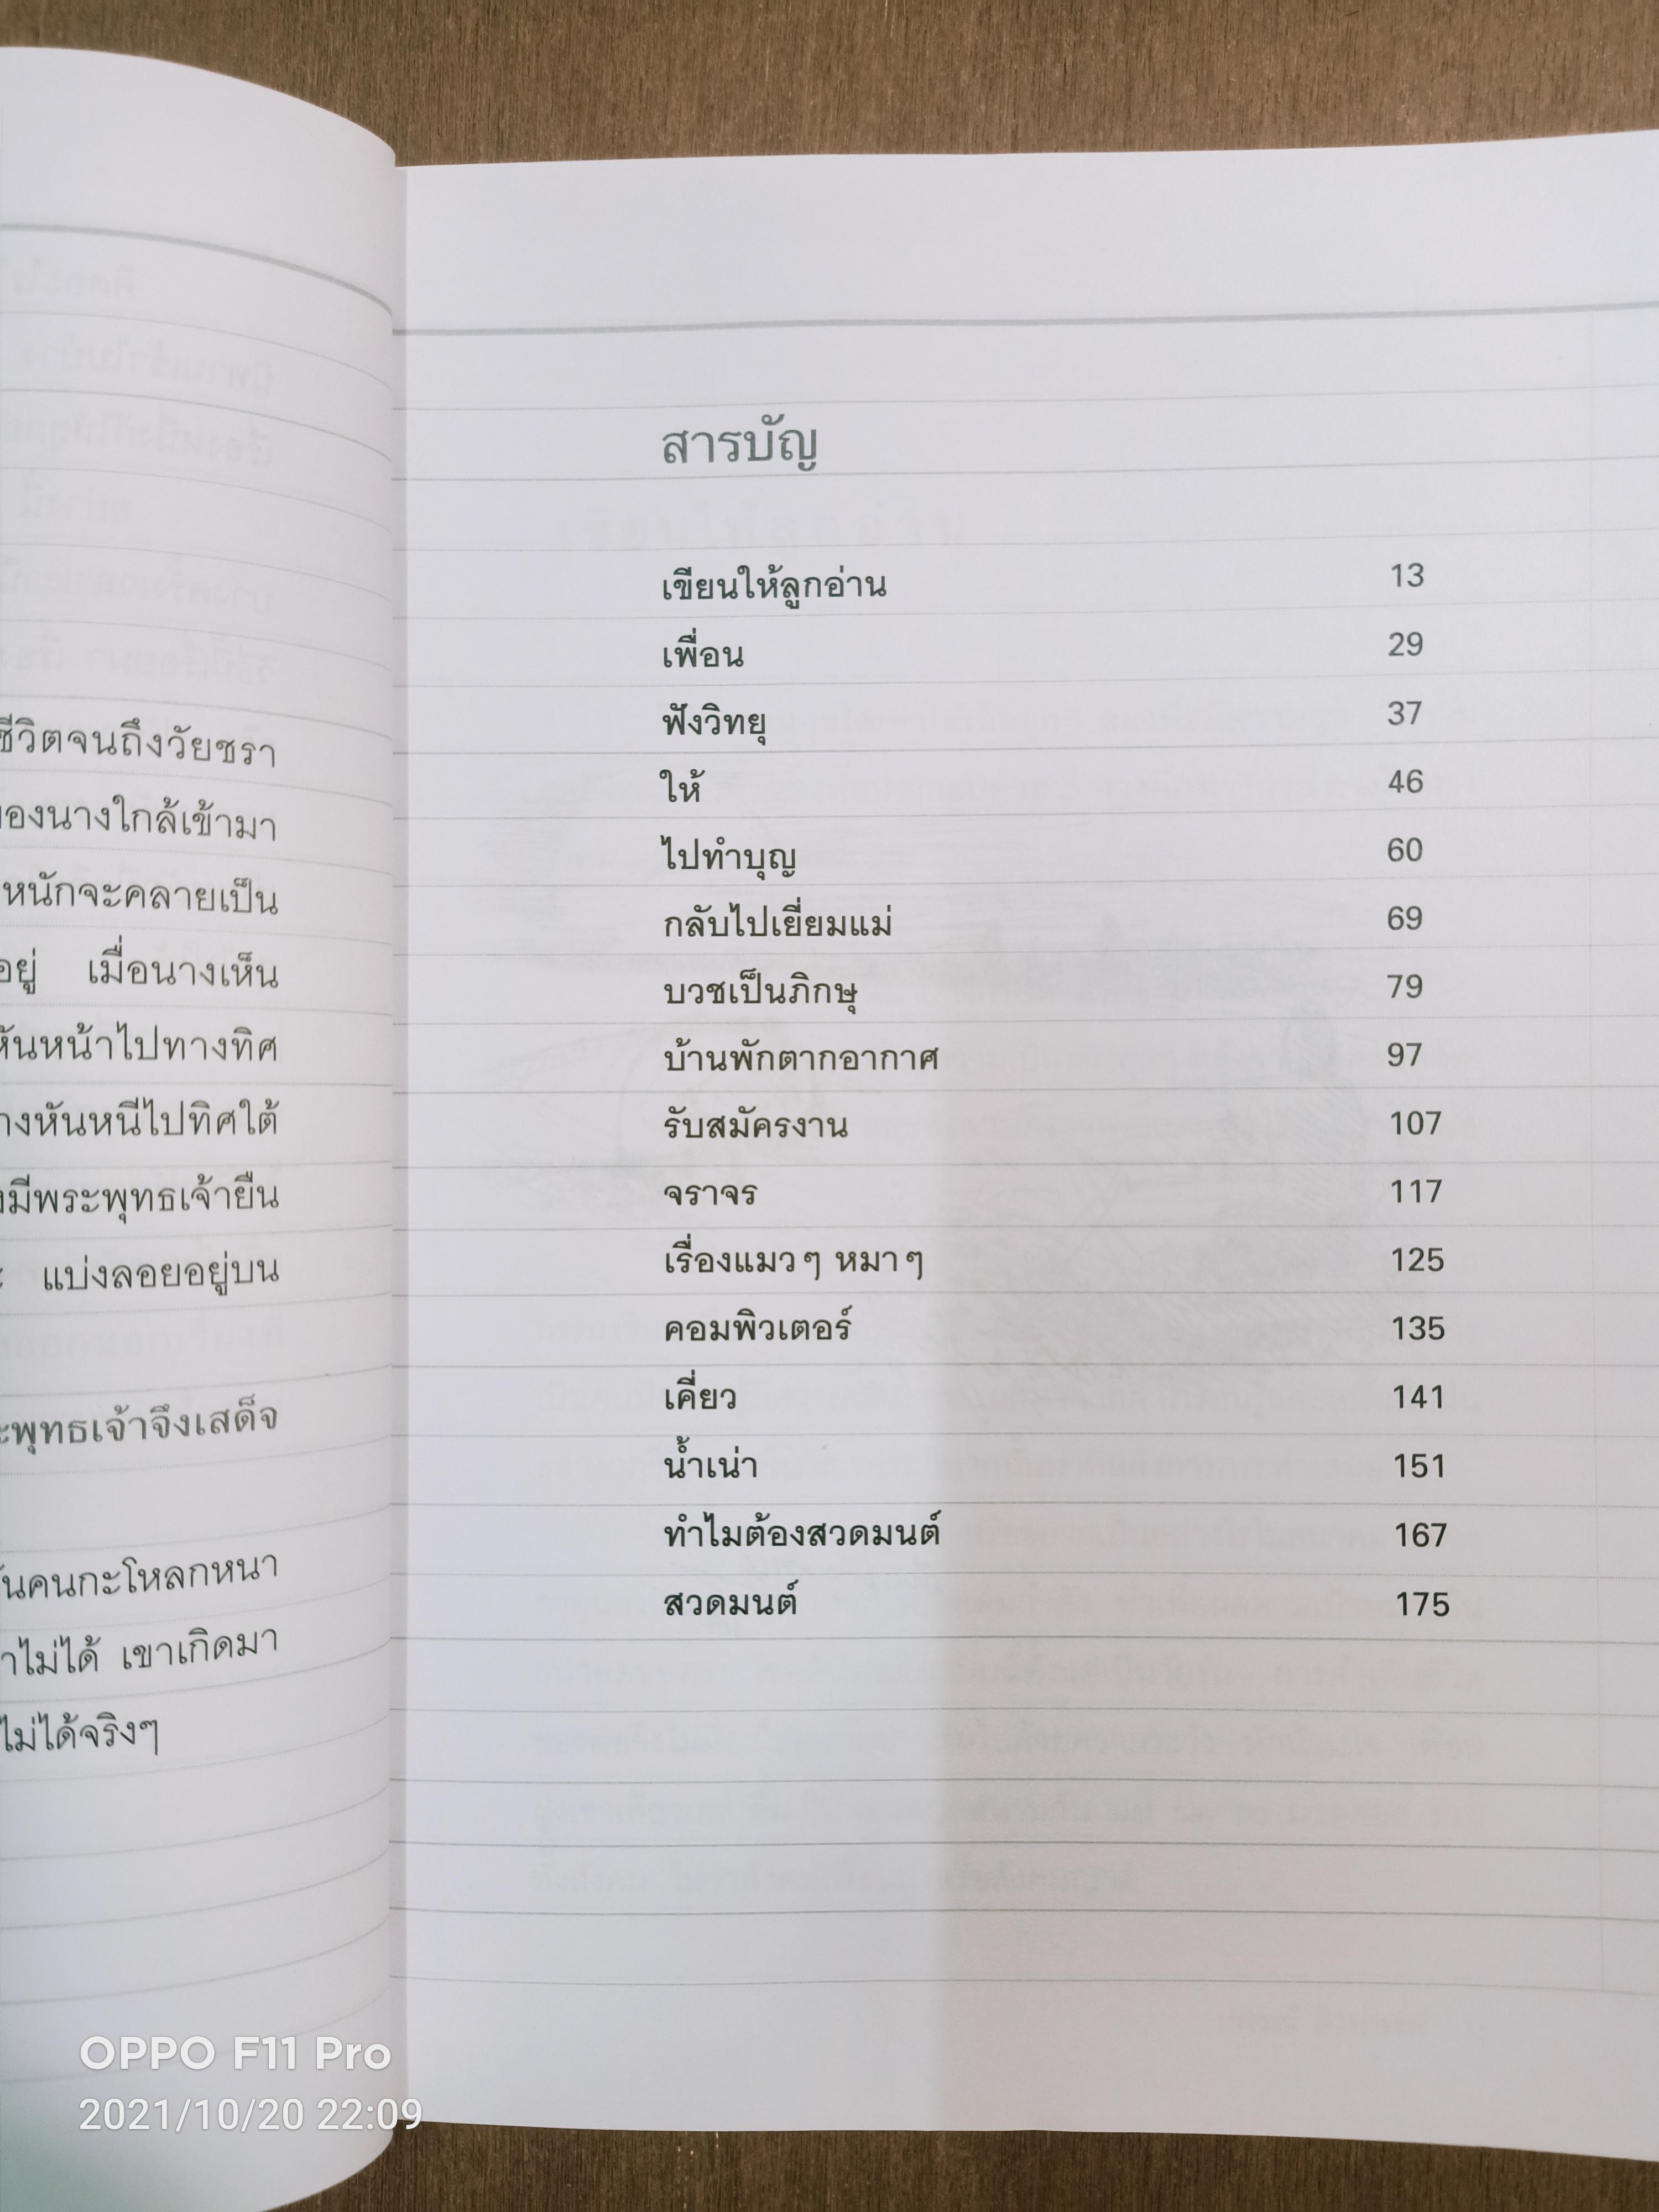 ชีวิตจนถึงวัยชรา
ของนางใกล้เข้ามา
หนักจะคลายเป็น
อยู่ เมื่อนางเห็น
หันหน้าไปทางทิศ
างหันหนีไปทิศใต้
งมีพระพุทธเจ้ายืน
แบ่งลอยอยู่บน
ะพุทธเจ้าจึงเสด็จ
นคนกะโหลกหนา
าไม่ได้ เขาเกิดมา
ไม่ได้จริงๆ
สารบัญ
เขียนให้ลูกอ่าน 13
เพื่อน 29
ฟังวิทยุ 37
ให้ 46
ไปทำบุญ 60
กลับไปเยี่ยมแม่ 69
บวชเป็นภิกษุ 79
บ้านพักตากอากาศ 97
รับสมัครงาน 107
จราจร 117
เรื่องแมวๆ หมาๆ 125
คอมพิวเตอร์ 135
เคี่ยว 141
น้ำเน่า 151
ทำไมต้องสวดมนต์ 167
สวดมนต์ 175
OPPO F11 Pro
2021/10/20 22:09